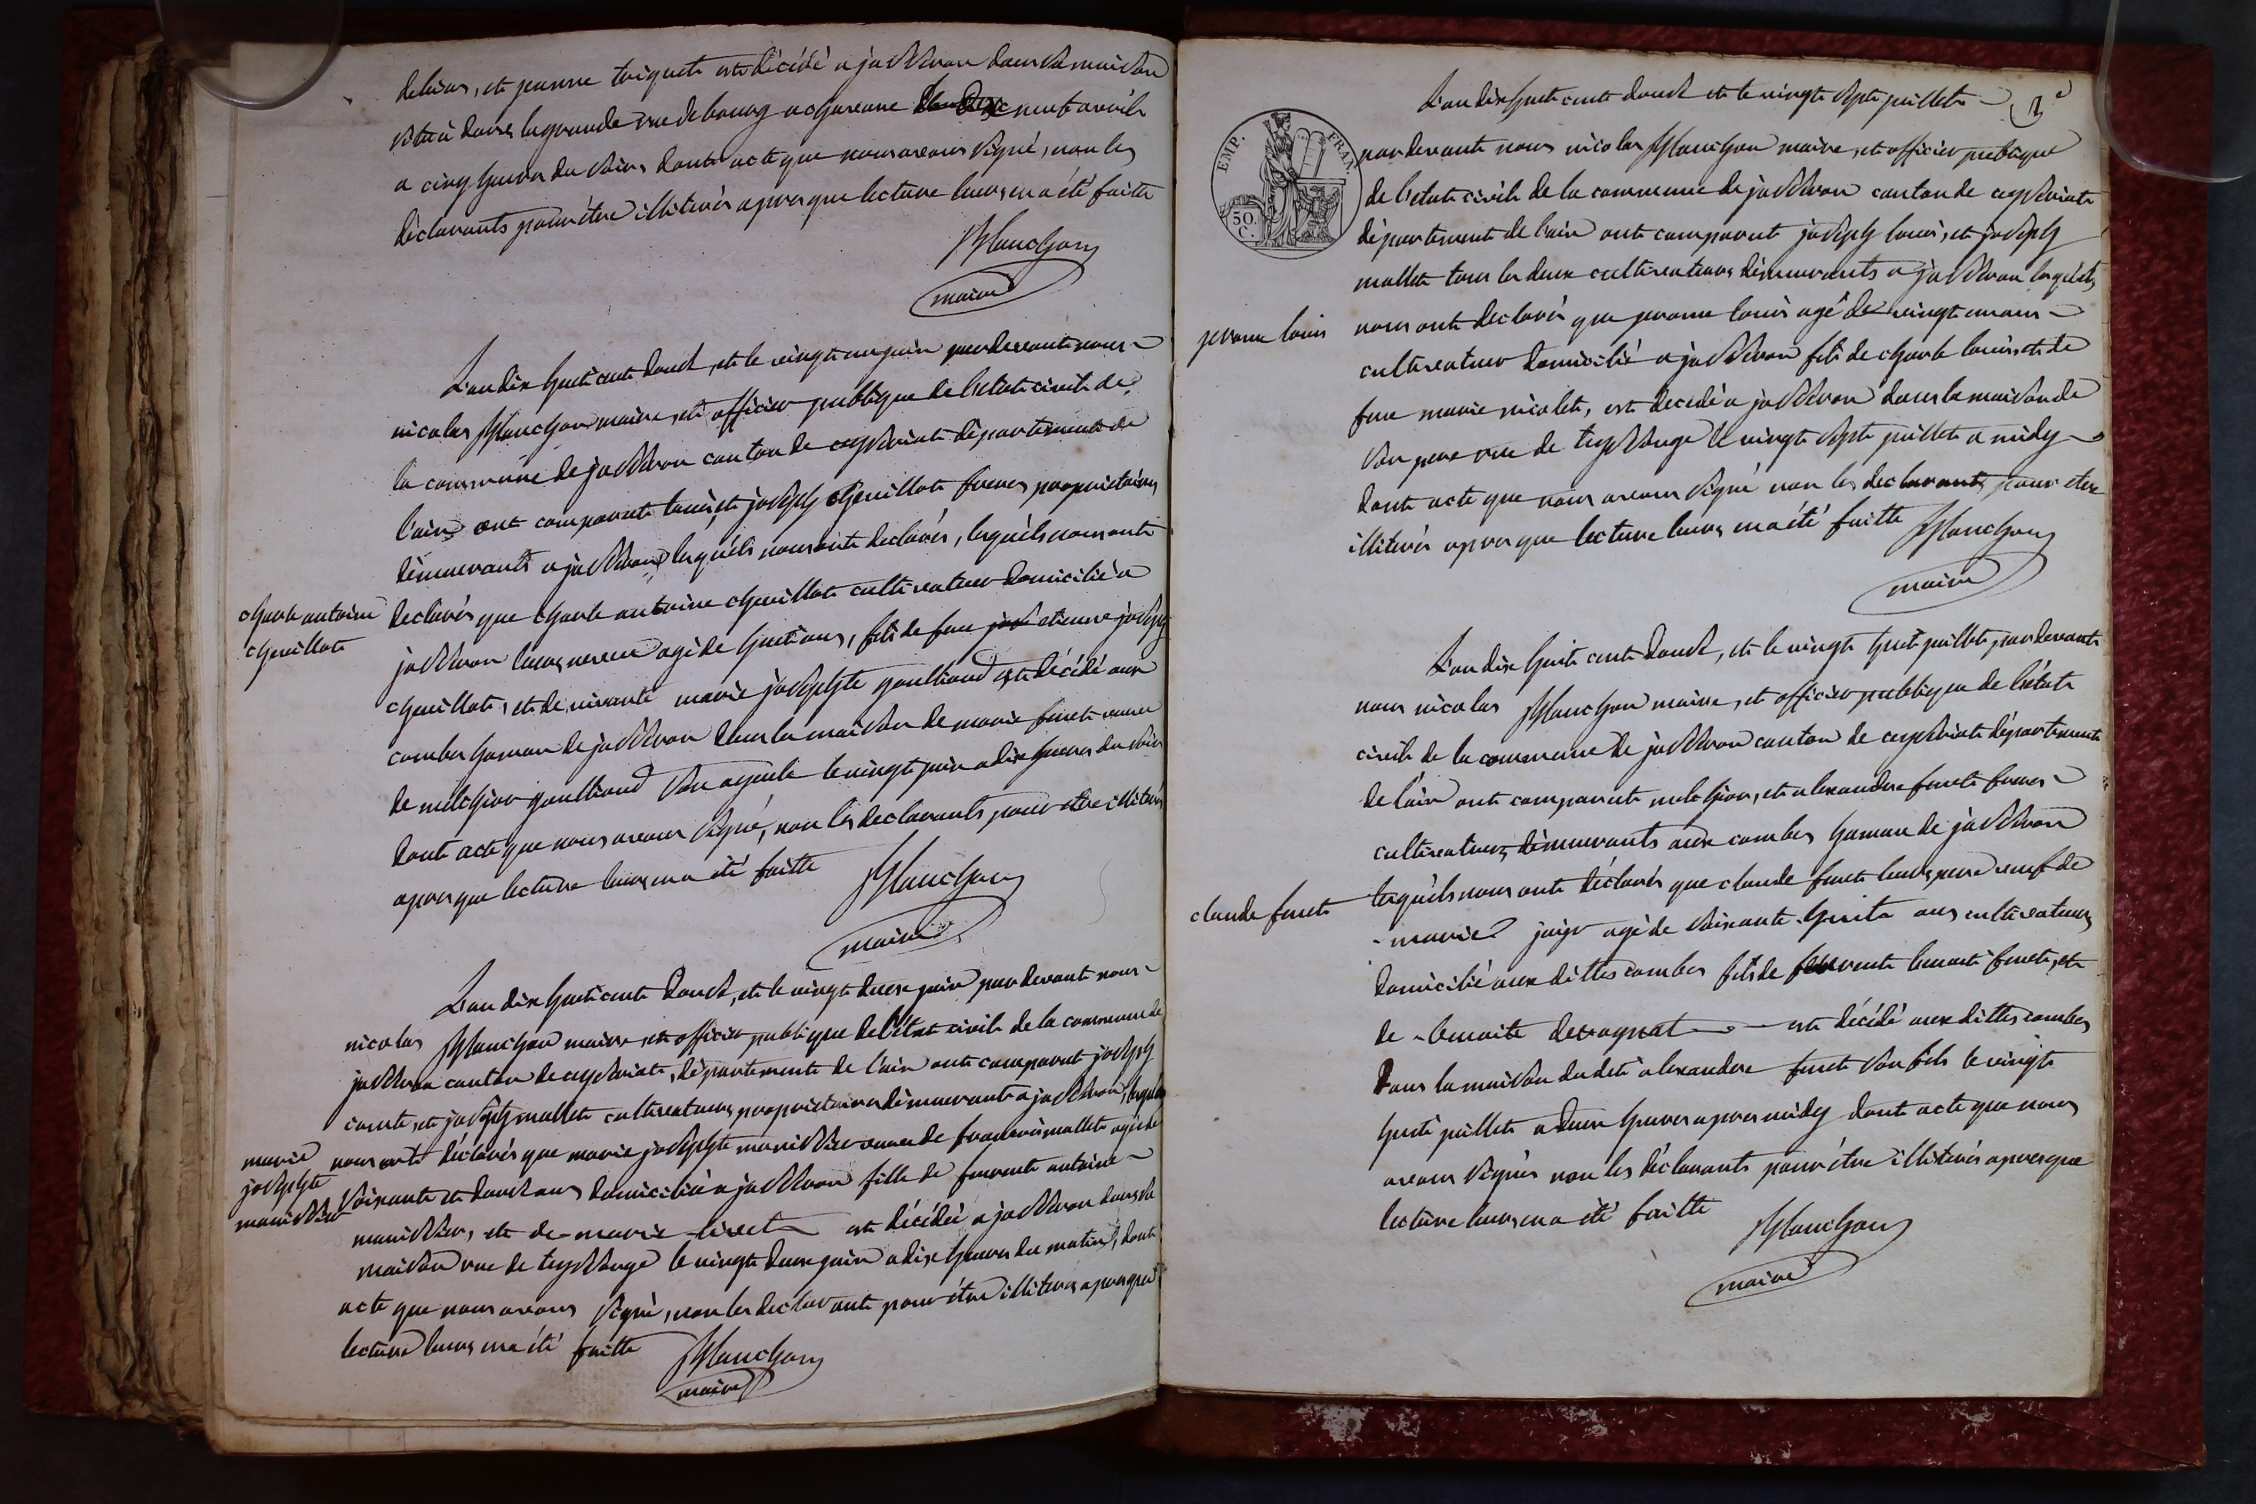 delias, et jeanne triquet est décédé a jasseron dans sa maison
située dans la grande rue de bourg a chareane neuf avril
a cinq heures du soir, dont acte que nous avons signé, non les
déclarants pour être illiterés apres que lecture leurs en a été faitte
Planchon
maire
L'an dix huit cent douse, et le vingt un juin pardevant nous
nicolas Planchon maire, et officier publique de l'etat civil de
la commune de jasseron canton de ceyseriat département de
l'ain ont comparut louis, et joseph chevillot freres proprietaires
démeurants a jasseron lesquels nous ont declarés, lesquels nous ont
charle antoine
chevillot
declarés que charle antoine chevillot cultivateur domicilié a
jasseron leurs neveu agé de huit ans, fils de feu jos etienne joseph
chevillot, et de vivante marie josephte goullioud est décédé aux
combes hameau de jasseron dans la maison de marie feret veuve
de melchior goullioud son ayeule le vingt juin a dix heures du soir
dont acte que nous avons signé, non les declarants, pour etre illiterés
apres que lecture leurs en a été faitte
Planchon
maire
L'an dix huit cent douse, et le vingt deux juin par devant nous
nicolas Planchon maire, et officier publique de l'état civil de la commune de
jasseron canton de ceyseriat, département de l'ain ont comparut joseph
comte, et joseph mallet cultivateurs proprietaires démeurants a jasseron, lesquels
marie
josephte
manissier
nous ont déclarés que marie josephte manissier veuve de francois mallet agée de
soixante et douse ans domiciliée a jasseron fille de furent antoine
manissier, et de marie livet est décédée a jasseron dans sa
maison rue de teyssonge le vingt deux juin a dix heures du matin, dont
acte que nous avons signé, non les declarants pour être illiterés apres que
lecture leurs en a été faitte
Planchon
maire
EMP. FRAN.
50.
C.
L'an dix huit cent douse et le vingt sept juillet
pardevant nous nicolas Planchon maire, et officier publique
de l'etat civil de la commune de jasseron canton de ceyseriat
département de l'ain ont comparut joseph louis, et joseph
mallet tous les deux cultivateurs démeurants a jasseron lesquels
jerome louis
nous ont declarés que jerome louis agé de vingt un ans
cultivateur domicilié a jasseron fils de charle louis et de
feue marie nicolet, est decedé a jasseron dans la maison de
son pere rue de teyssonge le vingt sept juillet a midy
dont acte que nous avons signé non les declarants, pour etre
illiterés apres que lecture leurs en a été faitte
Planchon
maire
L'an dix huit cent douse, et le vingt huit juillet, par devant
nous nicolas Planchon maire, et officier publique de l'état
civil de la commune de jasseron canton de ceyseriat département
de l'ain ont comparut melchior, et alexandre feret freres
cultivateurs démeurants aux combes hameau de jasseron
claude feret
lesquels nous ont déclarés que claude feret leurs pere veuf de
marie joigo agé de soixante huit ans cultivateur
domicilié aux dittes combes fils de furent benoit feret, et
de benoite decragnat est décédé aux dittes combes
dans la maison dudit alexandre feret son fils le vingt
huit juillet a deux heures apres midy dont acte que nous
avons signés non les déclarants pour être illiterés apres que
lecture leurs en a été faitte
Planchon
maire